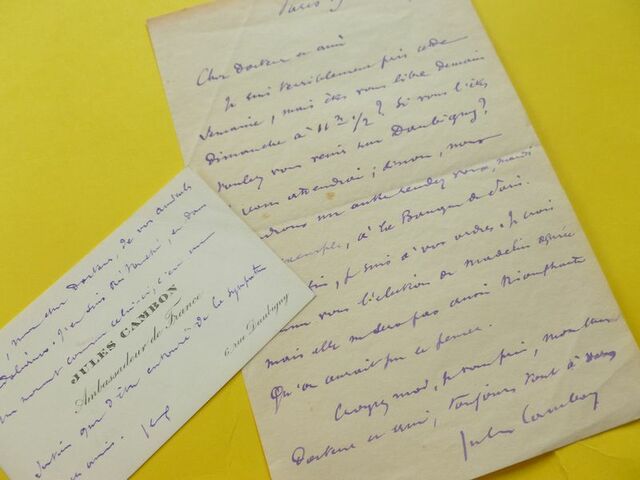 Paris
Cher Docteur et ami
Je suis terriblement pris cette
semaine, mais êtes vous libre demain
dimanche à 11h 1/2 ? Si vous l'êtes
voulez vous venir rue Daubigny ?
vous attendrai ; sinon, nous
un autre rendez vous, mardi
exemple, à la Banque de Paris.
je suis à vos ordres. Je crois
vous l'élection de Madelin
mais elle n'aura pas aussi triomphante
Qu'on aurait pu le penser.
Croyez moi, je vous prie, mon cher
Docteur et ami, toujours tout à vous
Jules Cambon
mon cher Docteur, de vos
touché, et dans
un moment comme celui-ci, c'est un
JULES CAMBON
Ambassadeur de France
6, rue Daubigny
que d'être entouré de la sympathie
amis.